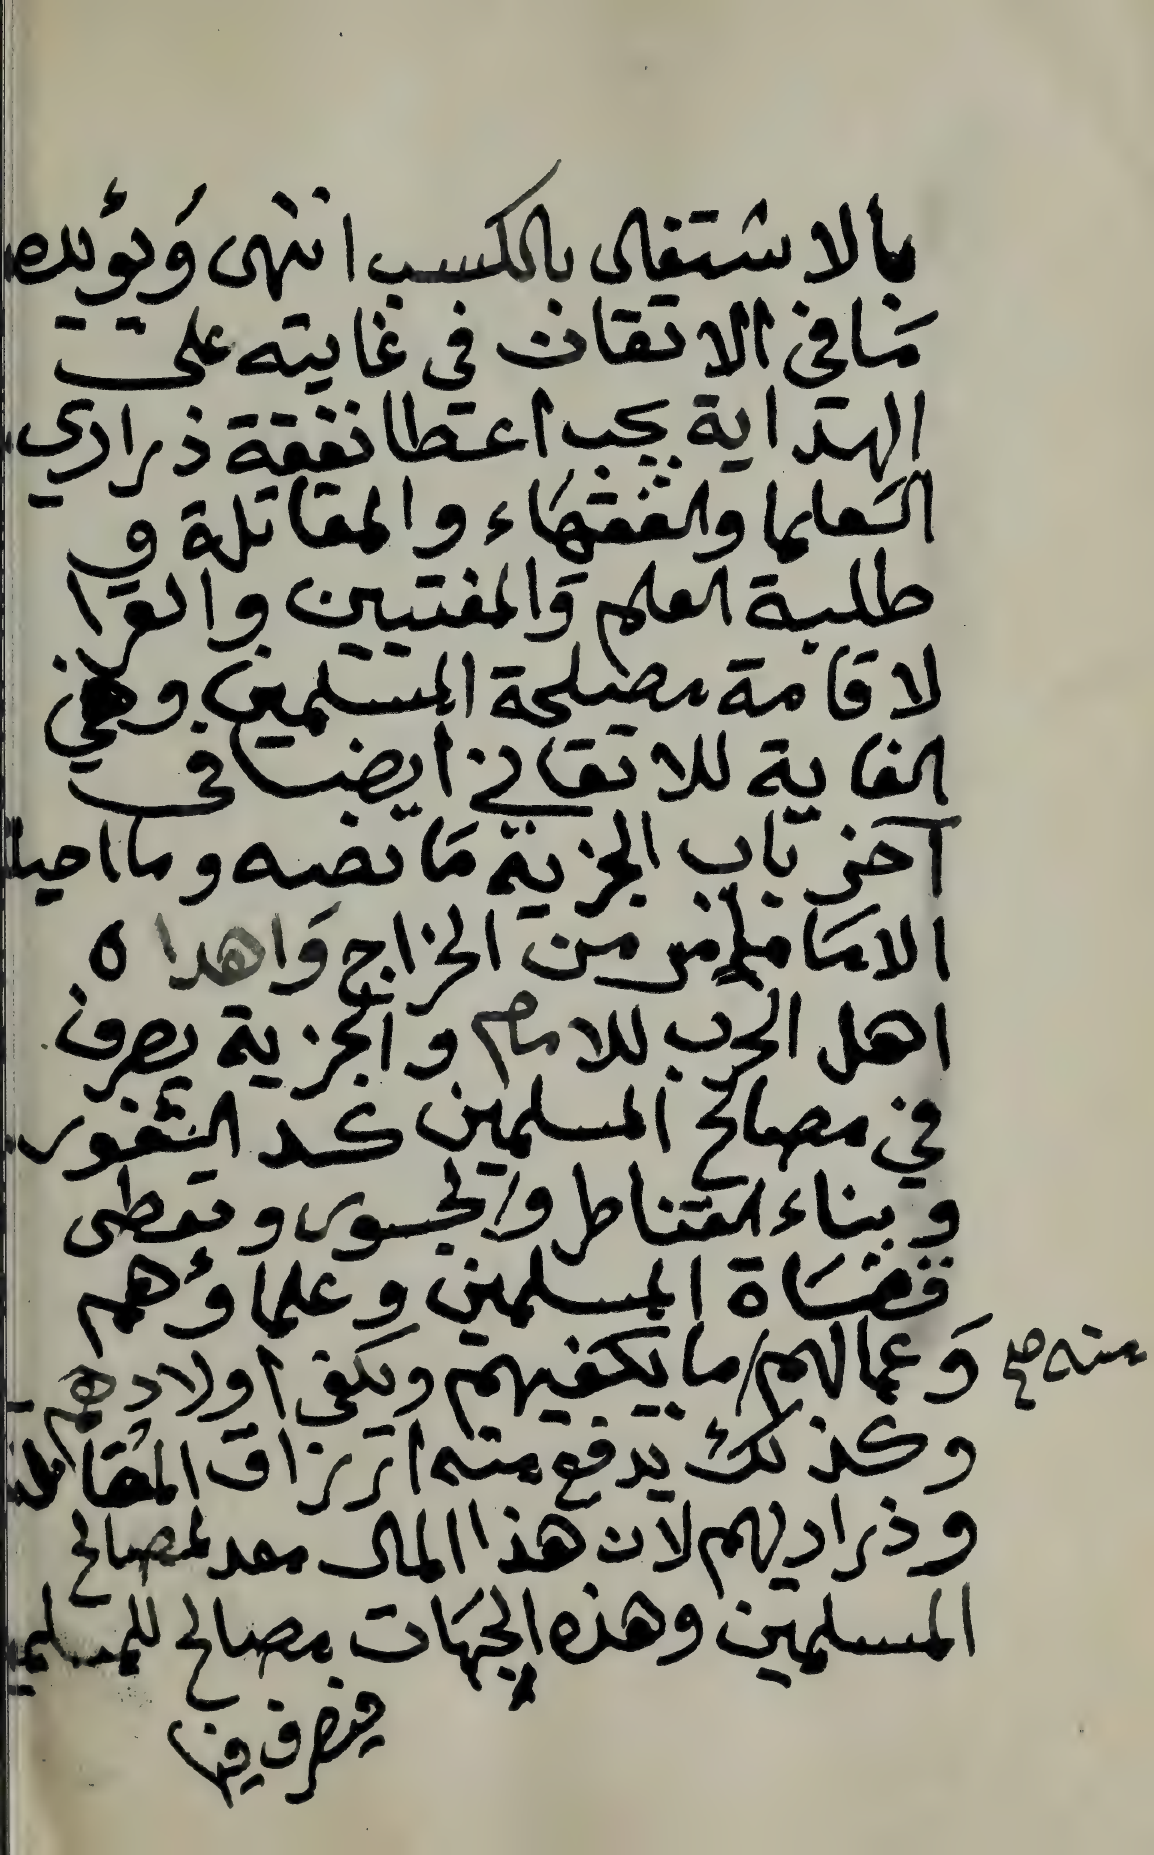 بالاشتغال بالكسب انتهى ويؤيده
ما في الاتقاني في غايته على
الهداية يجب اعطا نفقة ذراري
العلما والفقهاء والمقاتلة و
طلبة العلم والمفتيين والقرا
لاقامة مصلحة المسلمين وفي
الغاية للاتقاني ايضا في
آخر باب الجزية ما نصه وما
الامام من الخراج واهداه
اهل الحرب للامام والجزية يصرف
في مصالح المسلمين كسد الثغور
وبناء القناطر والجسور ويعطى
قضاة المسلمين وعلماؤهم
وعمالهم ما يكفيهم ويكفى اولادهم
منه صح
وكذلك يدفع منه ارزاق المقاتلة
وذراريهم لان هذا المال معد لمصالح
المسلمين وهذه الجهات مصالح للمسلمين
فيصرف فيها